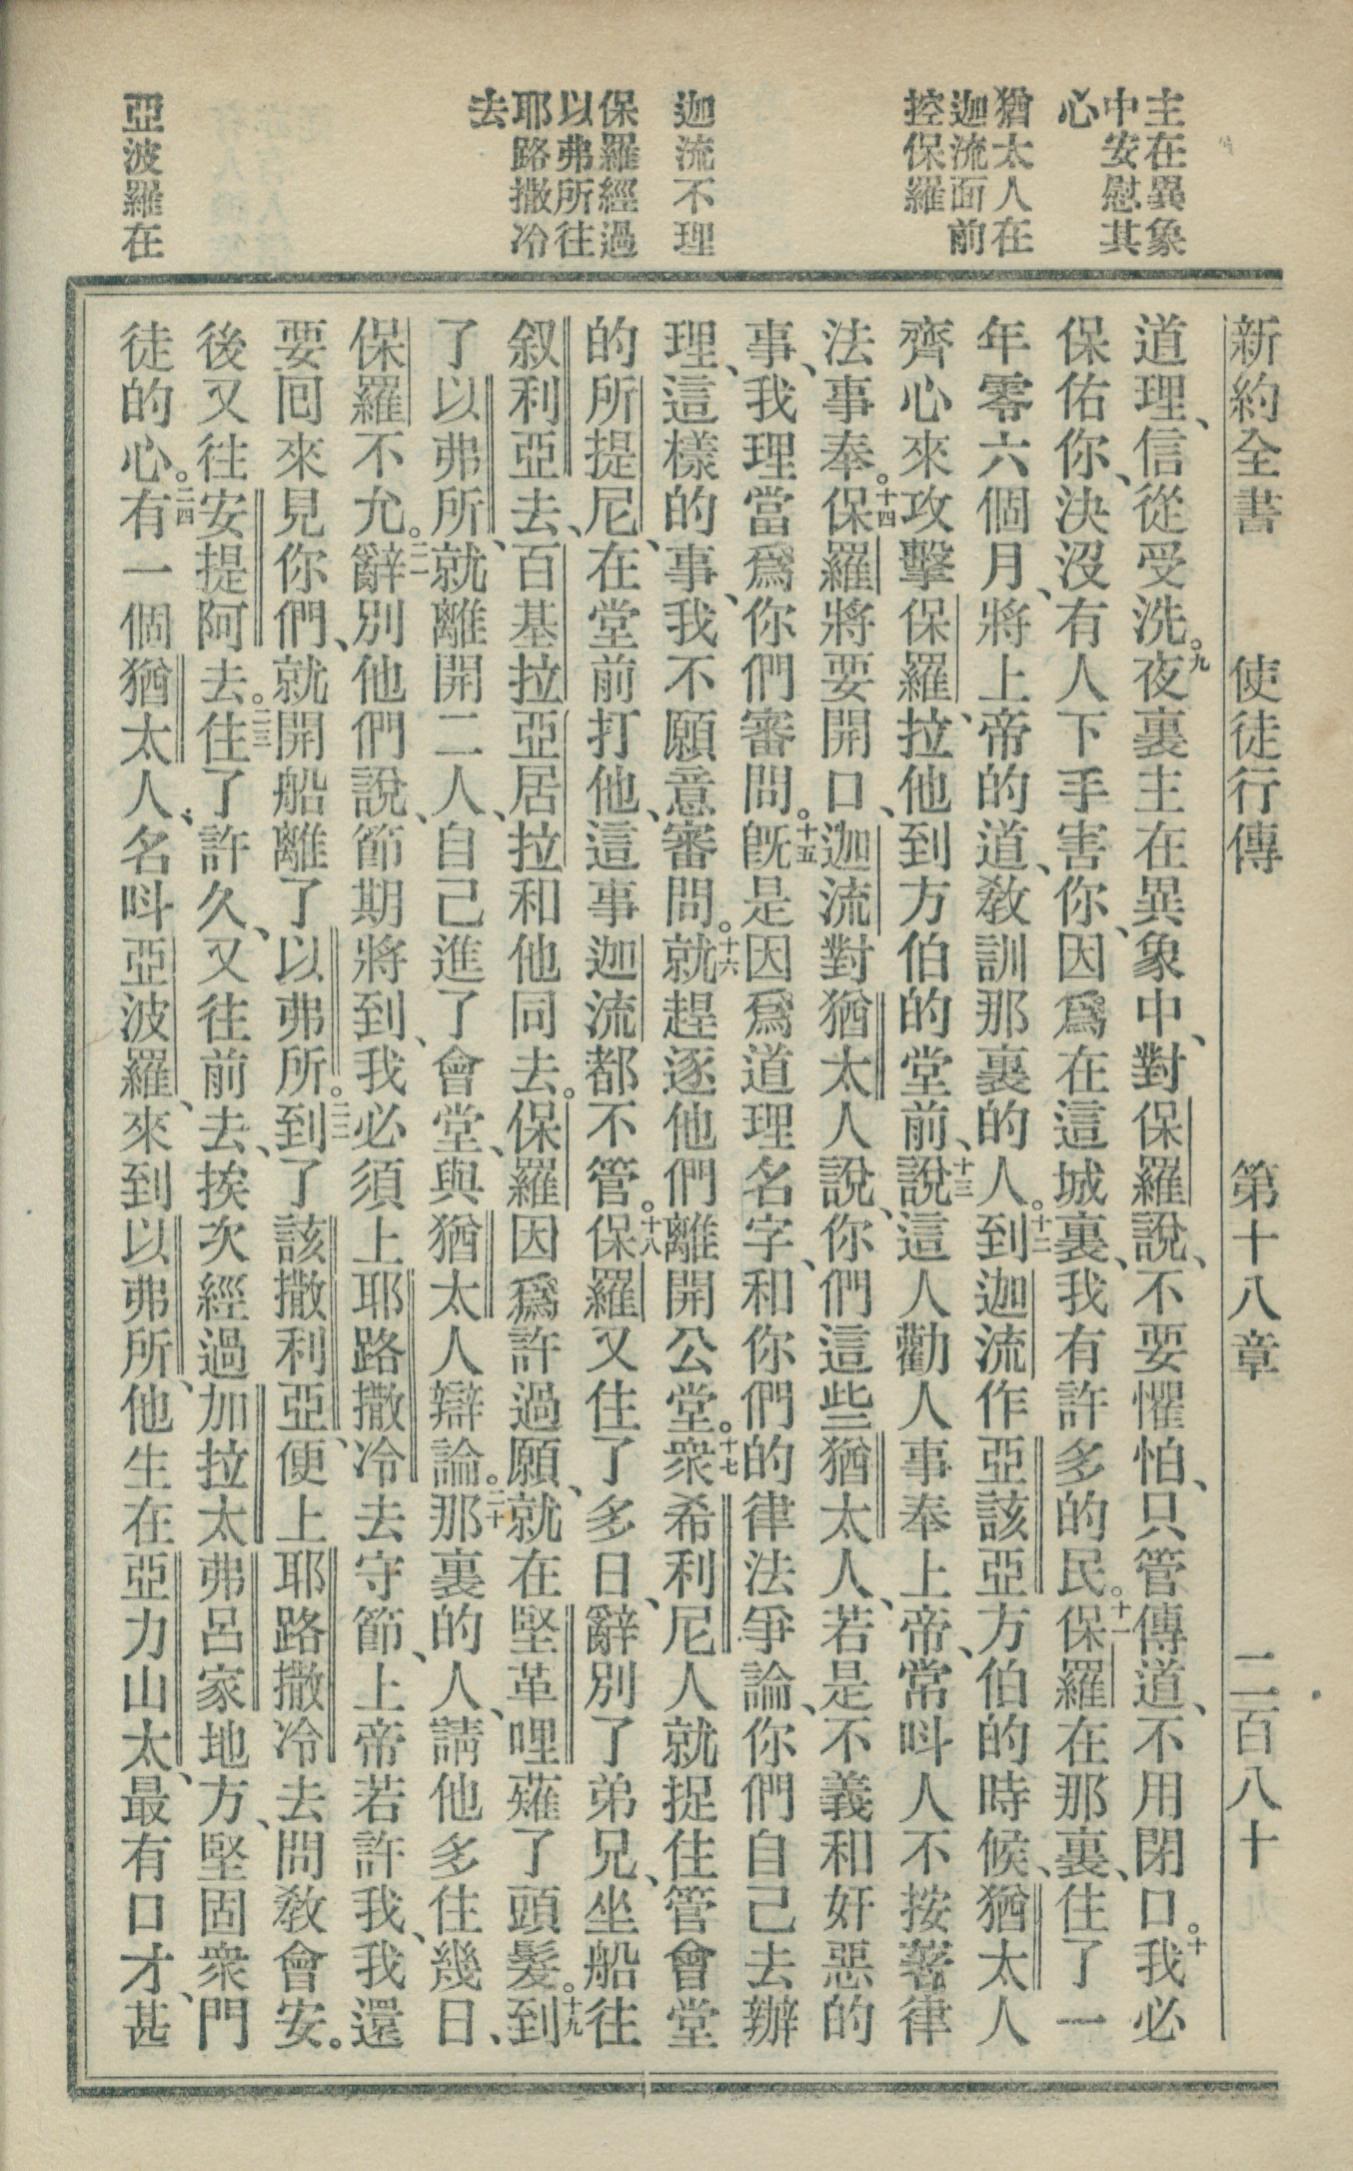 主在異象
中安慰其
心
猶太人在
迦流面前
控保羅
迦流不理
保羅經過
以弗所往
耶路撒冷
去
亞波羅在
新約全書 使徒行傳 第十八章 二百八十
道理、信從受洗。九夜裏主在異象中、對保羅說、不要懼怕、只管傳道、不用閉口。十我必
保佑你、決沒有人下手害你、因爲在這城裏、我有許多的民。十一保羅在那裏、住了一
年零六個月、將上帝的道、敎訓那裏的人。十二到迦流作亞該亞方伯的時候、猶太人
齊心來攻擊保羅、拉他到方伯的堂前、十三說這人勸人事奉上帝、常呌人不按著律
法事奉。十四保羅將要開口、迦流對猶太人說、你們這些猶太人、若是不義和奸惡的
事、我理當爲你們審問。十五旣是因爲道理名字、和你們的律法爭論、你們自己去辦
理、這樣的事、我不願意審問。十六就趕逐他們離開公堂。十七衆希利尼人就捉住管會堂
的所提尼、在堂前打他、這事迦流都不管。十八保羅又住了多日、辭別了弟兄、坐船往
叙利亞去、百基拉亞居拉和他同去。保羅因爲許過願、就在堅革哩薙了頭髮。十九到
了以弗所、就離開二人、自己進了會堂、與猶太人辯論。二十那裏的人、請他多住幾日、
保羅不允。二一辭別他們說、節期將到、我必須上耶路撒冷去守節、上帝若許我、我還
要回來見你們、就開船離了以弗所。二二到了該撒利亞、便上耶路撒冷去問敎會安。
後又往安提阿去。二三住了許久、又往前去、挨次經過加拉太弗呂家地方、堅固衆門
徒的心。二四有一個猶太人、名呌亞波羅、來到以弗所、他生在亞力山太、最有口才、甚